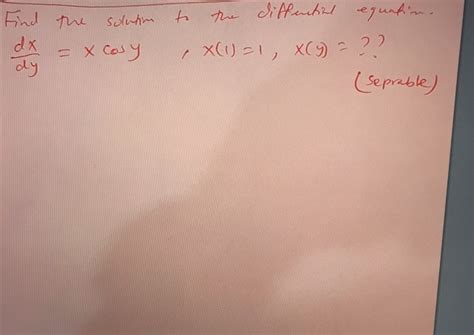 Find the solution to the differential equation.
dx/dy = x cos y , x(1) = 1 , x(y) = ??
(seprable)